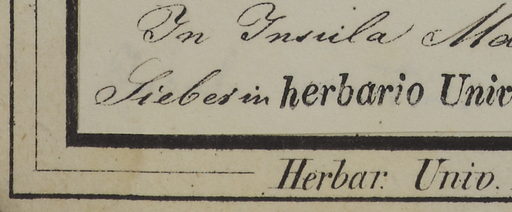 In Insula Ma
Sieber in herbario Univ
Herbar. Univ.